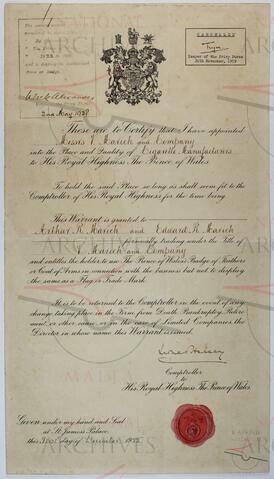 CANCELLED
Keeper of the Privy Purse
30th November, 1959
2nd May 1938
These are to Certify that I have appointed
Messrs V. Marich and Company
into the Place and Quality of Cigarette Manufacturers
to His Royal Highness The Prince of Wales
To hold the said Place so long as shall seem fit to the
Comptroller of His Royal Highness for the time being
This Warrant is granted to
Arthur R. Marich and Edward R. Marich
personally trading under the Title
of V. Marich and Company
and entitles the holder to use The Prince of Wales's Badge of Feathers
or Coat of Arms in connection with the business but not to display
the same as a Flag or Trade Mark.
It is to be returned to the Comptroller in the event of any
change taking place in the Firm from Death, Bankruptcy, Retire-
ment or other cause, or in the case of Limited Companies, the
Director in whose name this Warrant is issued.
Comptroller
to
His Royal Highness The Prince of Wales.
Given under my hand and Seal
at St. James's Palace,
this day of December